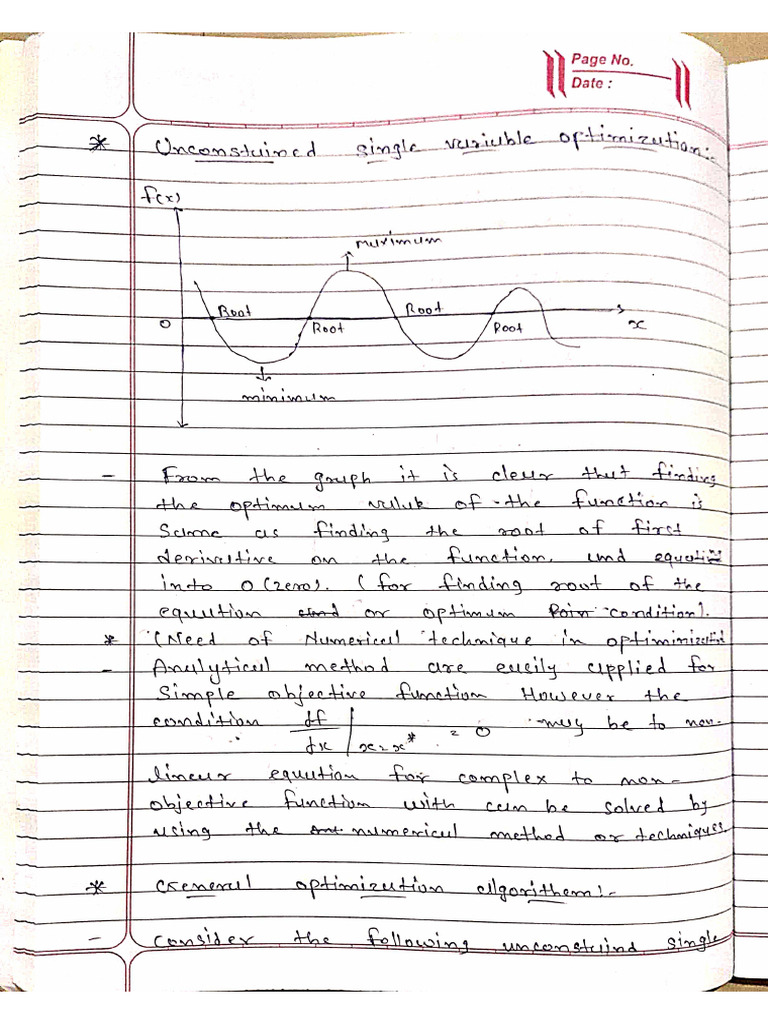 Page No.
Date :
* Unconstuined single variuble optimizution:-
f(x)
murimum
Root
Root
0
Root
Root
x
minimum
- From the gruph it is cleur thut finding
the optimum vulue of the function is
Sume as finding the root of first
derivutive on the function. und equuti
into 0 (zero). (for finding root of the
equution or optimum condition).
* (Need of Numericul technique in optiminizuti
- Anulyticul method ure euily upplied for
Simple objective function However the
condition df/dx | x=x* = 0 muy be to non-
lineur equution for complex to non-
objective function with cun be solved by
using the numericul method or techniques
* Generul optimizution ulgorithem:-
- Consider the following unconstuind single